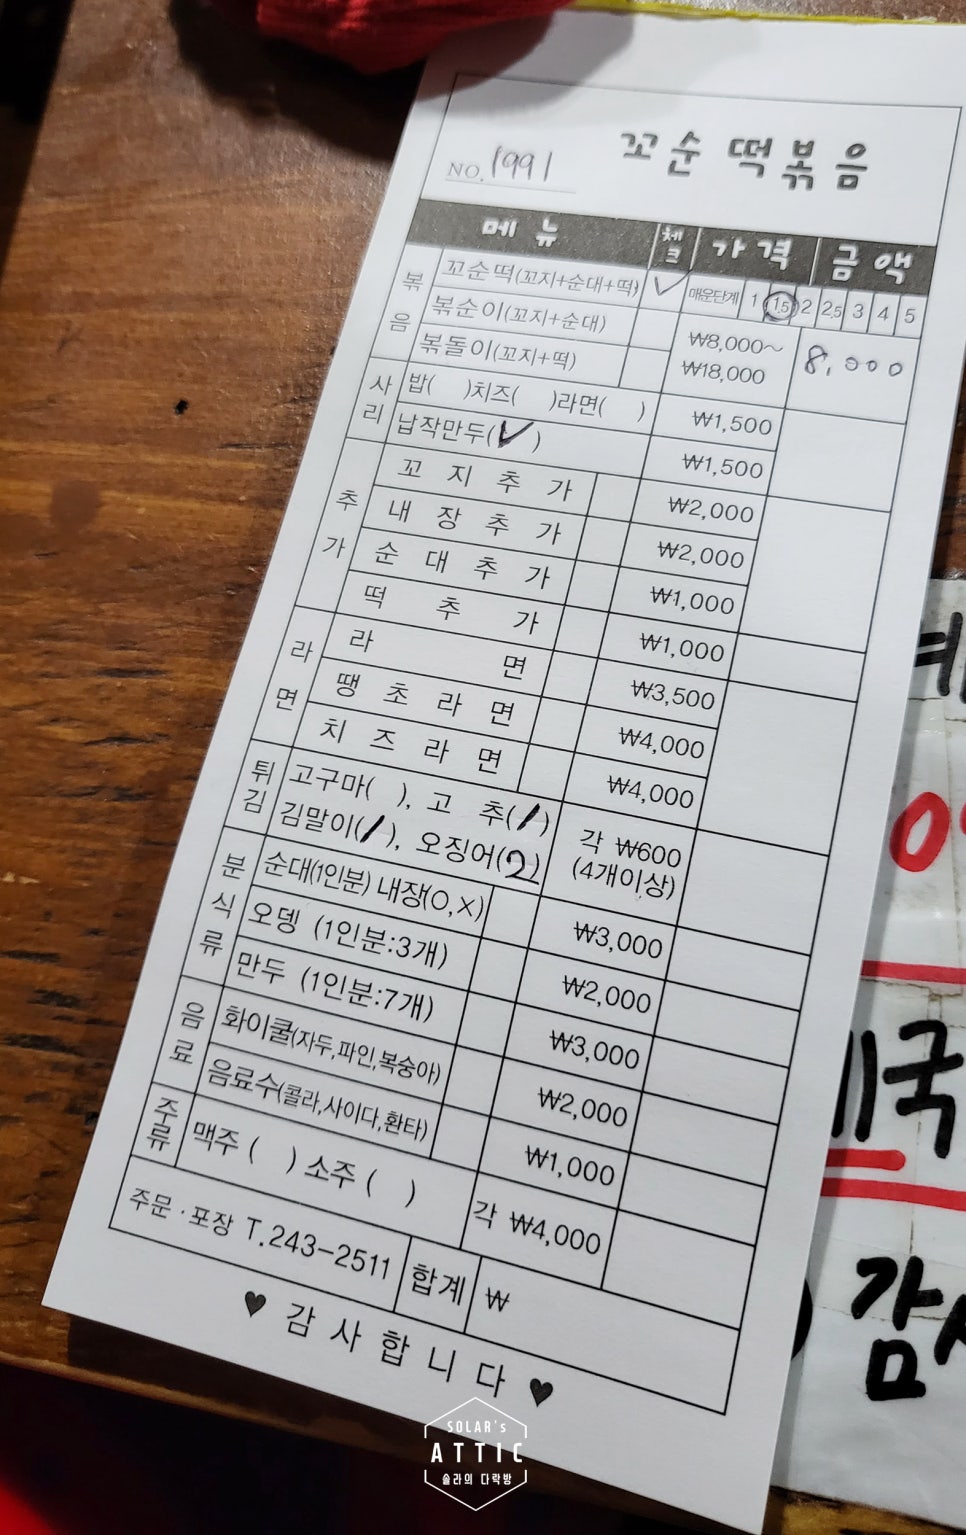 NO. 1991 꼬순떡볶음
메뉴 체크 가격 금액
볶음
꼬순떡(꼬지+순대+떡) ✓ 매운단계 1 1.5 2 2.5 3 4 5
볶순이(꼬지+순대)
볶돌이(꼬지+떡)
₩8,000~
₩18,000
8,000
사리
밥( )치즈( )라면( ) ₩1,500
납작만두(✓) ₩1,500
추가
꼬지추가 ₩2,000
내장추가 ₩2,000
순대추가 ₩1,000
떡추가 ₩1,000
라면
라면 ₩3,500
땡초라면 ₩4,000
치즈라면 ₩4,000
튀김
고구마( ), 고추(/)
김말이(/), 오징어(2)
각 ₩600
(4개이상)
분식류
순대(1인분) 내장(O,X) ₩3,000
오뎅 (1인분:3개) ₩2,000
만두 (1인분:7개) ₩3,000
음료
화이쿨(자두,파인,복숭아) ₩2,000
음료수(콜라,사이다,환타) ₩1,000
주류
맥주 ( ) 소주 ( ) 각 ₩4,000
주문·포장 T.243-2511 합계 ₩
♥ 감사합니다 ♥
국
감
SOLAR's
ATTIC
솔라의 다락방